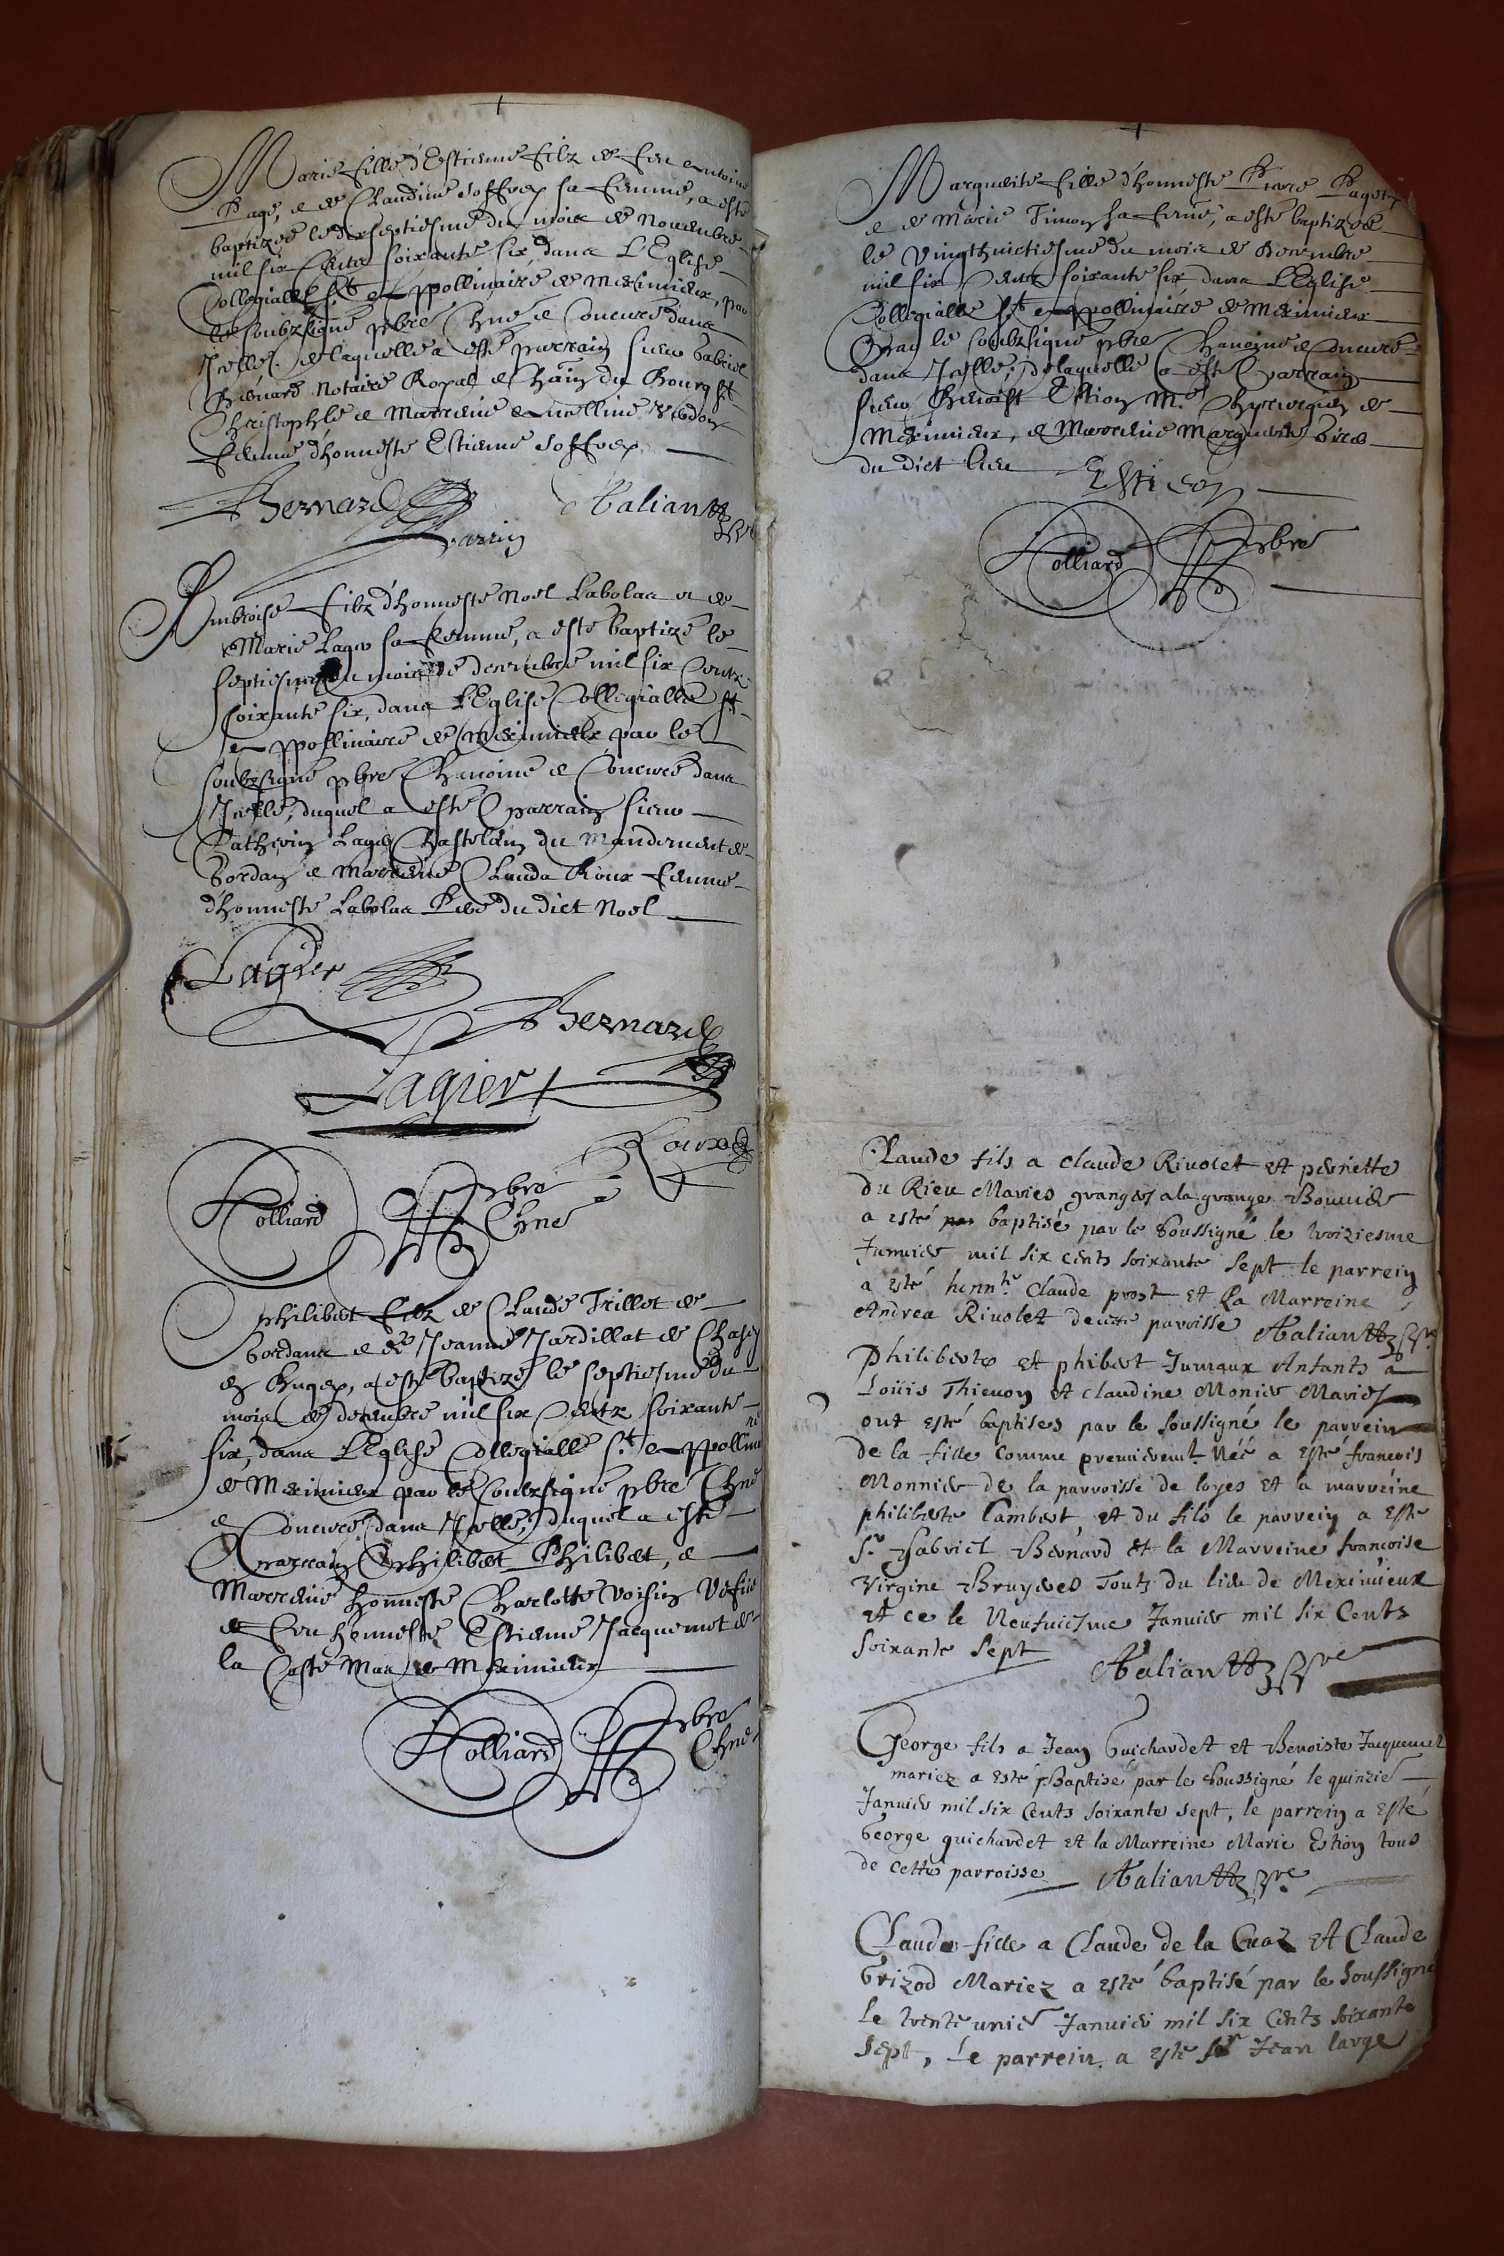 Marie fille d'Estienne filz de feu Antoine
Page, e de Claudine Joffrey sa femme, a esté
baptizée le dixseptiesme du moix de Nouembre
mil six Centz soixante six, dans L'Eglise
Collegialle St Appollinaire de Meximieux, par
le soubzsigné pbre Chne e Concuré dans
Icelle. de laquelle a esté parrain sieur Gabriel
Bernard Notaire Royal e Chain du Bourg St
Christophle e Marreine
femme d'honneste Estienne Joffrey
Bernard Aaliantz
parrin
Ambroise filz d'honneste Noel Labolas et de
Marie Lager sa femme, a esté baptizé le
septiesme du mois de decembre mil six Centz
soixante six, dans L'Eglise Collegialle St
Appollinaire de Meximieux par le
soubzsigné pbre Chanoine e Concuré dans
Icelle, duquel a esté parrain sieur
Catherin Lager Chastelain du Mandement de
e Marreine Clauda Roux femme
d'honneste Labolas Pere du dict Noel
Lagier
Bernard
Lagier
Roux
Colliard pbre
Chne
Philibert filz de Claude Trillet de
e de Jeanne Jardillat de Chasey
en Bugey, a esté baptizé le septiesme du
mois de decembre mil six Centz soixante
six, dans L'Eglise Collegialle St Appollinre
de Meximieux par le soubzsigné pbre Chne
e Concuré dans Icelle, duquel a esté
parrain Philibert Philibert, e
Marreine honneste Charlotte Voisin Vefue
de feu honneste Estienne Jacquemet de
la Coste Man de Meximieux
Colliard pbre
Chne
Marguerite fille d'honneste Pierre Paget
e de Marie Timon sa feme, a esté baptizée
le Vingthuictiesme du mois de Decembre
mil six Centz soixante six dans L'Eglise
Collegialle St Appollinaire de Meximieux
Par le soubzsigné pbre Chanoine e Concuré
dans Icelle; delaquelle a esté parrain
sieur Benoist Estion Me Chyrurgien de
Meximieux, e Marreine Marguerite
du dict lieu Estion
Colliard pbre
Claude fils a claude Riuolet et pernette
du Rieu Maries grangers a la grange Bouuier
a esté baptisé par le Soussigné le troiziesme
Januier mil six cents soixante sept le parrein
a esté honnte Claude prost et La Marreine
Andrea Riuolet de cette paroisse Aaliantz pre
Philiberte et phibert Jumaux Anfants a
Loüis Thieuon et claudine Monier Maries
ont esté baptises par le soussigné le parrein
de la fille comme premieremt Née a esté francois
Monnier de la parroisse de loyes et la marreine
philiberte Lambert, et du fils le parrein a Esté
Sr Gabriel Bernard et la Marreine francoise
Virgine Bruyeres Touts du lieu de Meximieux
et ce le Neufuiesme Januier mil six Cents
Soixante Sept Aaliantz pre
George fils a Jean Guichardet et Benoiste Jaquemet
mariez a esté Baptise par le Soussigné le quinzie
Januier mil six Cents Soixante sept, le parrein a Esté
George guichardet et la Marreine Marie Estion tous
de cette parroisse Aaliantz pre
Claude fille a Claude de la Cuaz et Claude
Grizod Mariez a esté baptisé par le soussigné
Le trente unie Januier mil six Cents soixante
sept, Le parrein a esté Sr Jean large